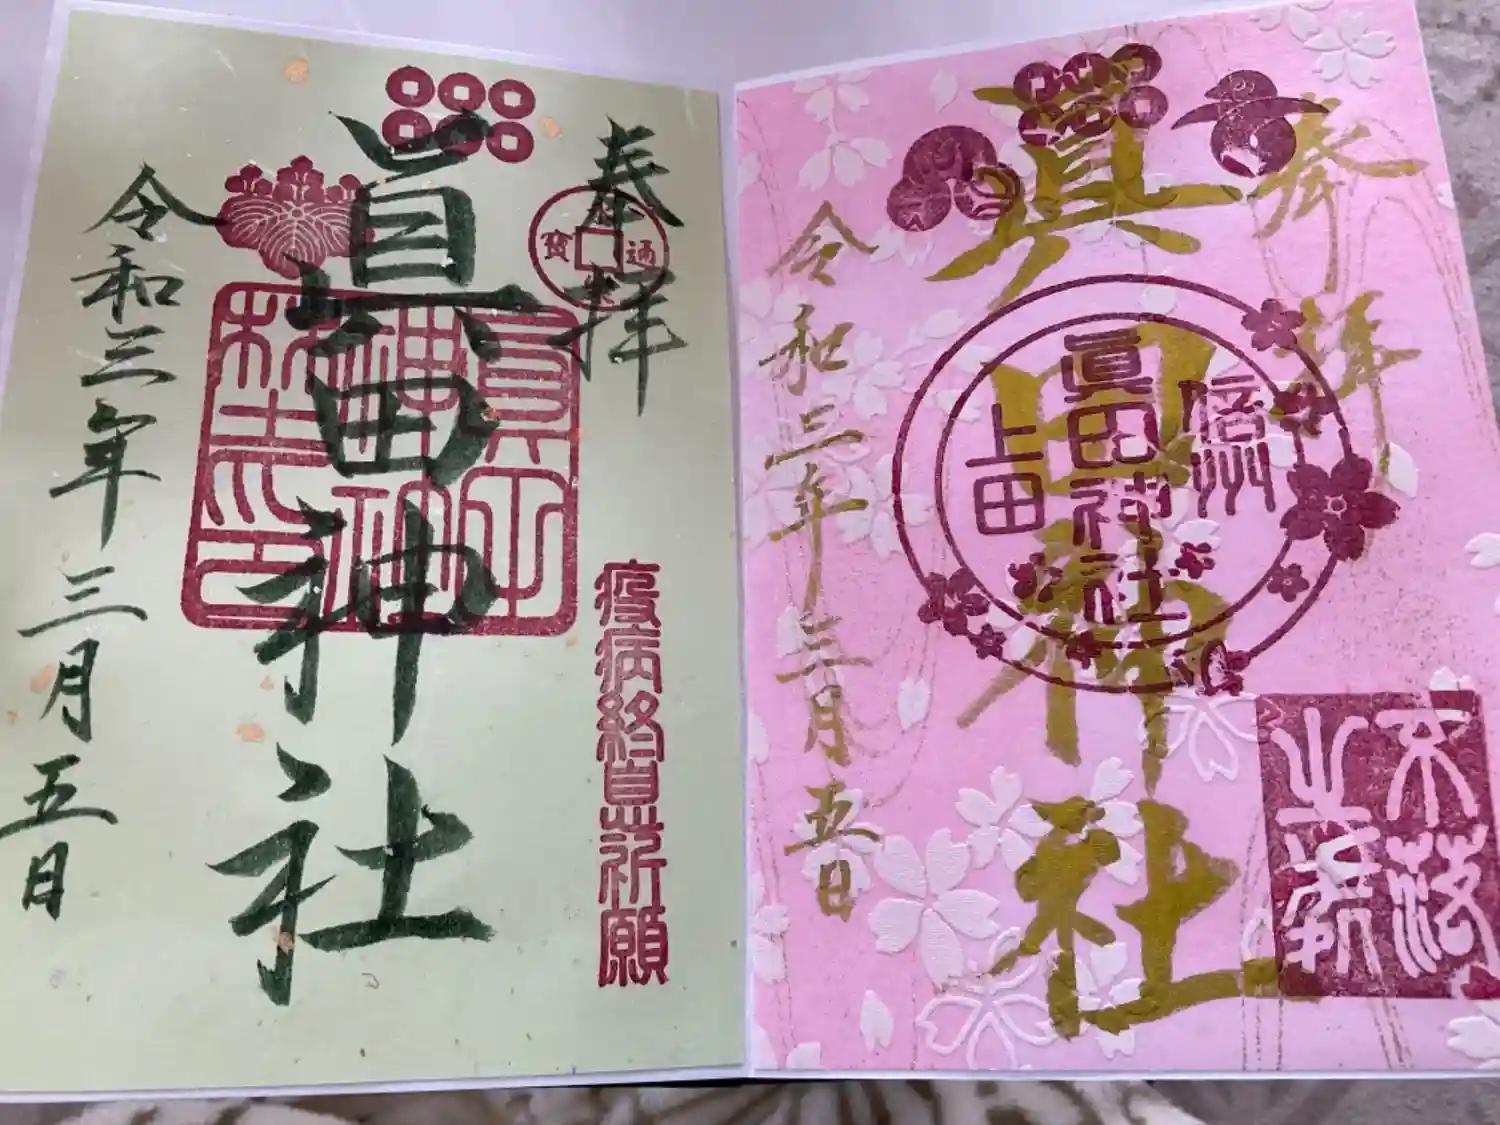 奉拝
眞田神社
令和三年三月五日
疫病終息祈願
眞田神社之印
通寶
奉拝
眞田神社
令和三年三月五日
信州
眞田神社
上田
不落之砦